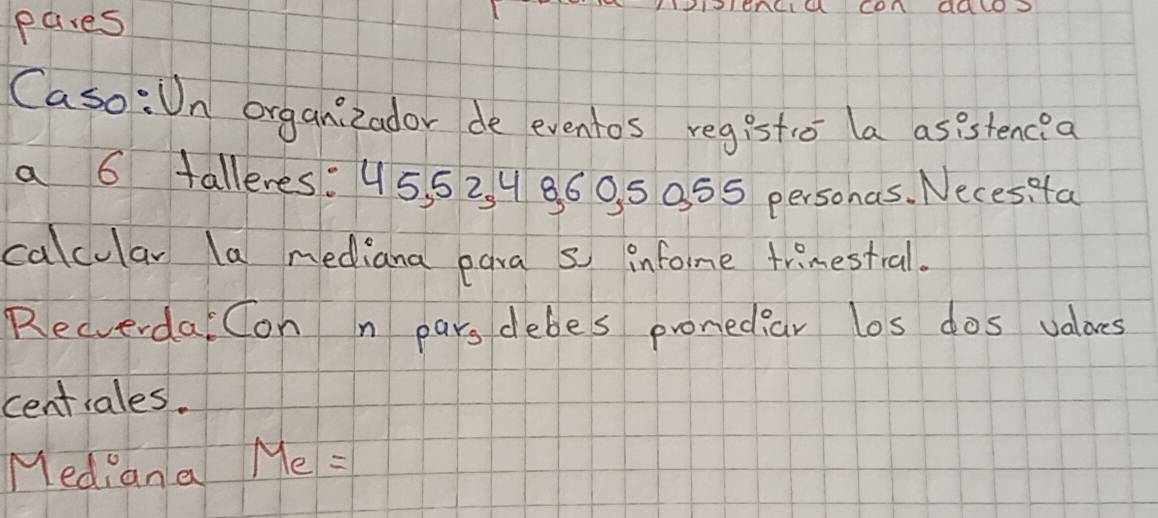 pares con datos
Caso: Un organizador de eventos registró la asistencia
a 6 talleres: 45, 52, 48, 60, 50, 55 personas. Necesita
calcular la mediana para su informe trimestral.
Recuerda: Con n par, debes promediar los dos valores
centrales.
Mediana Me =